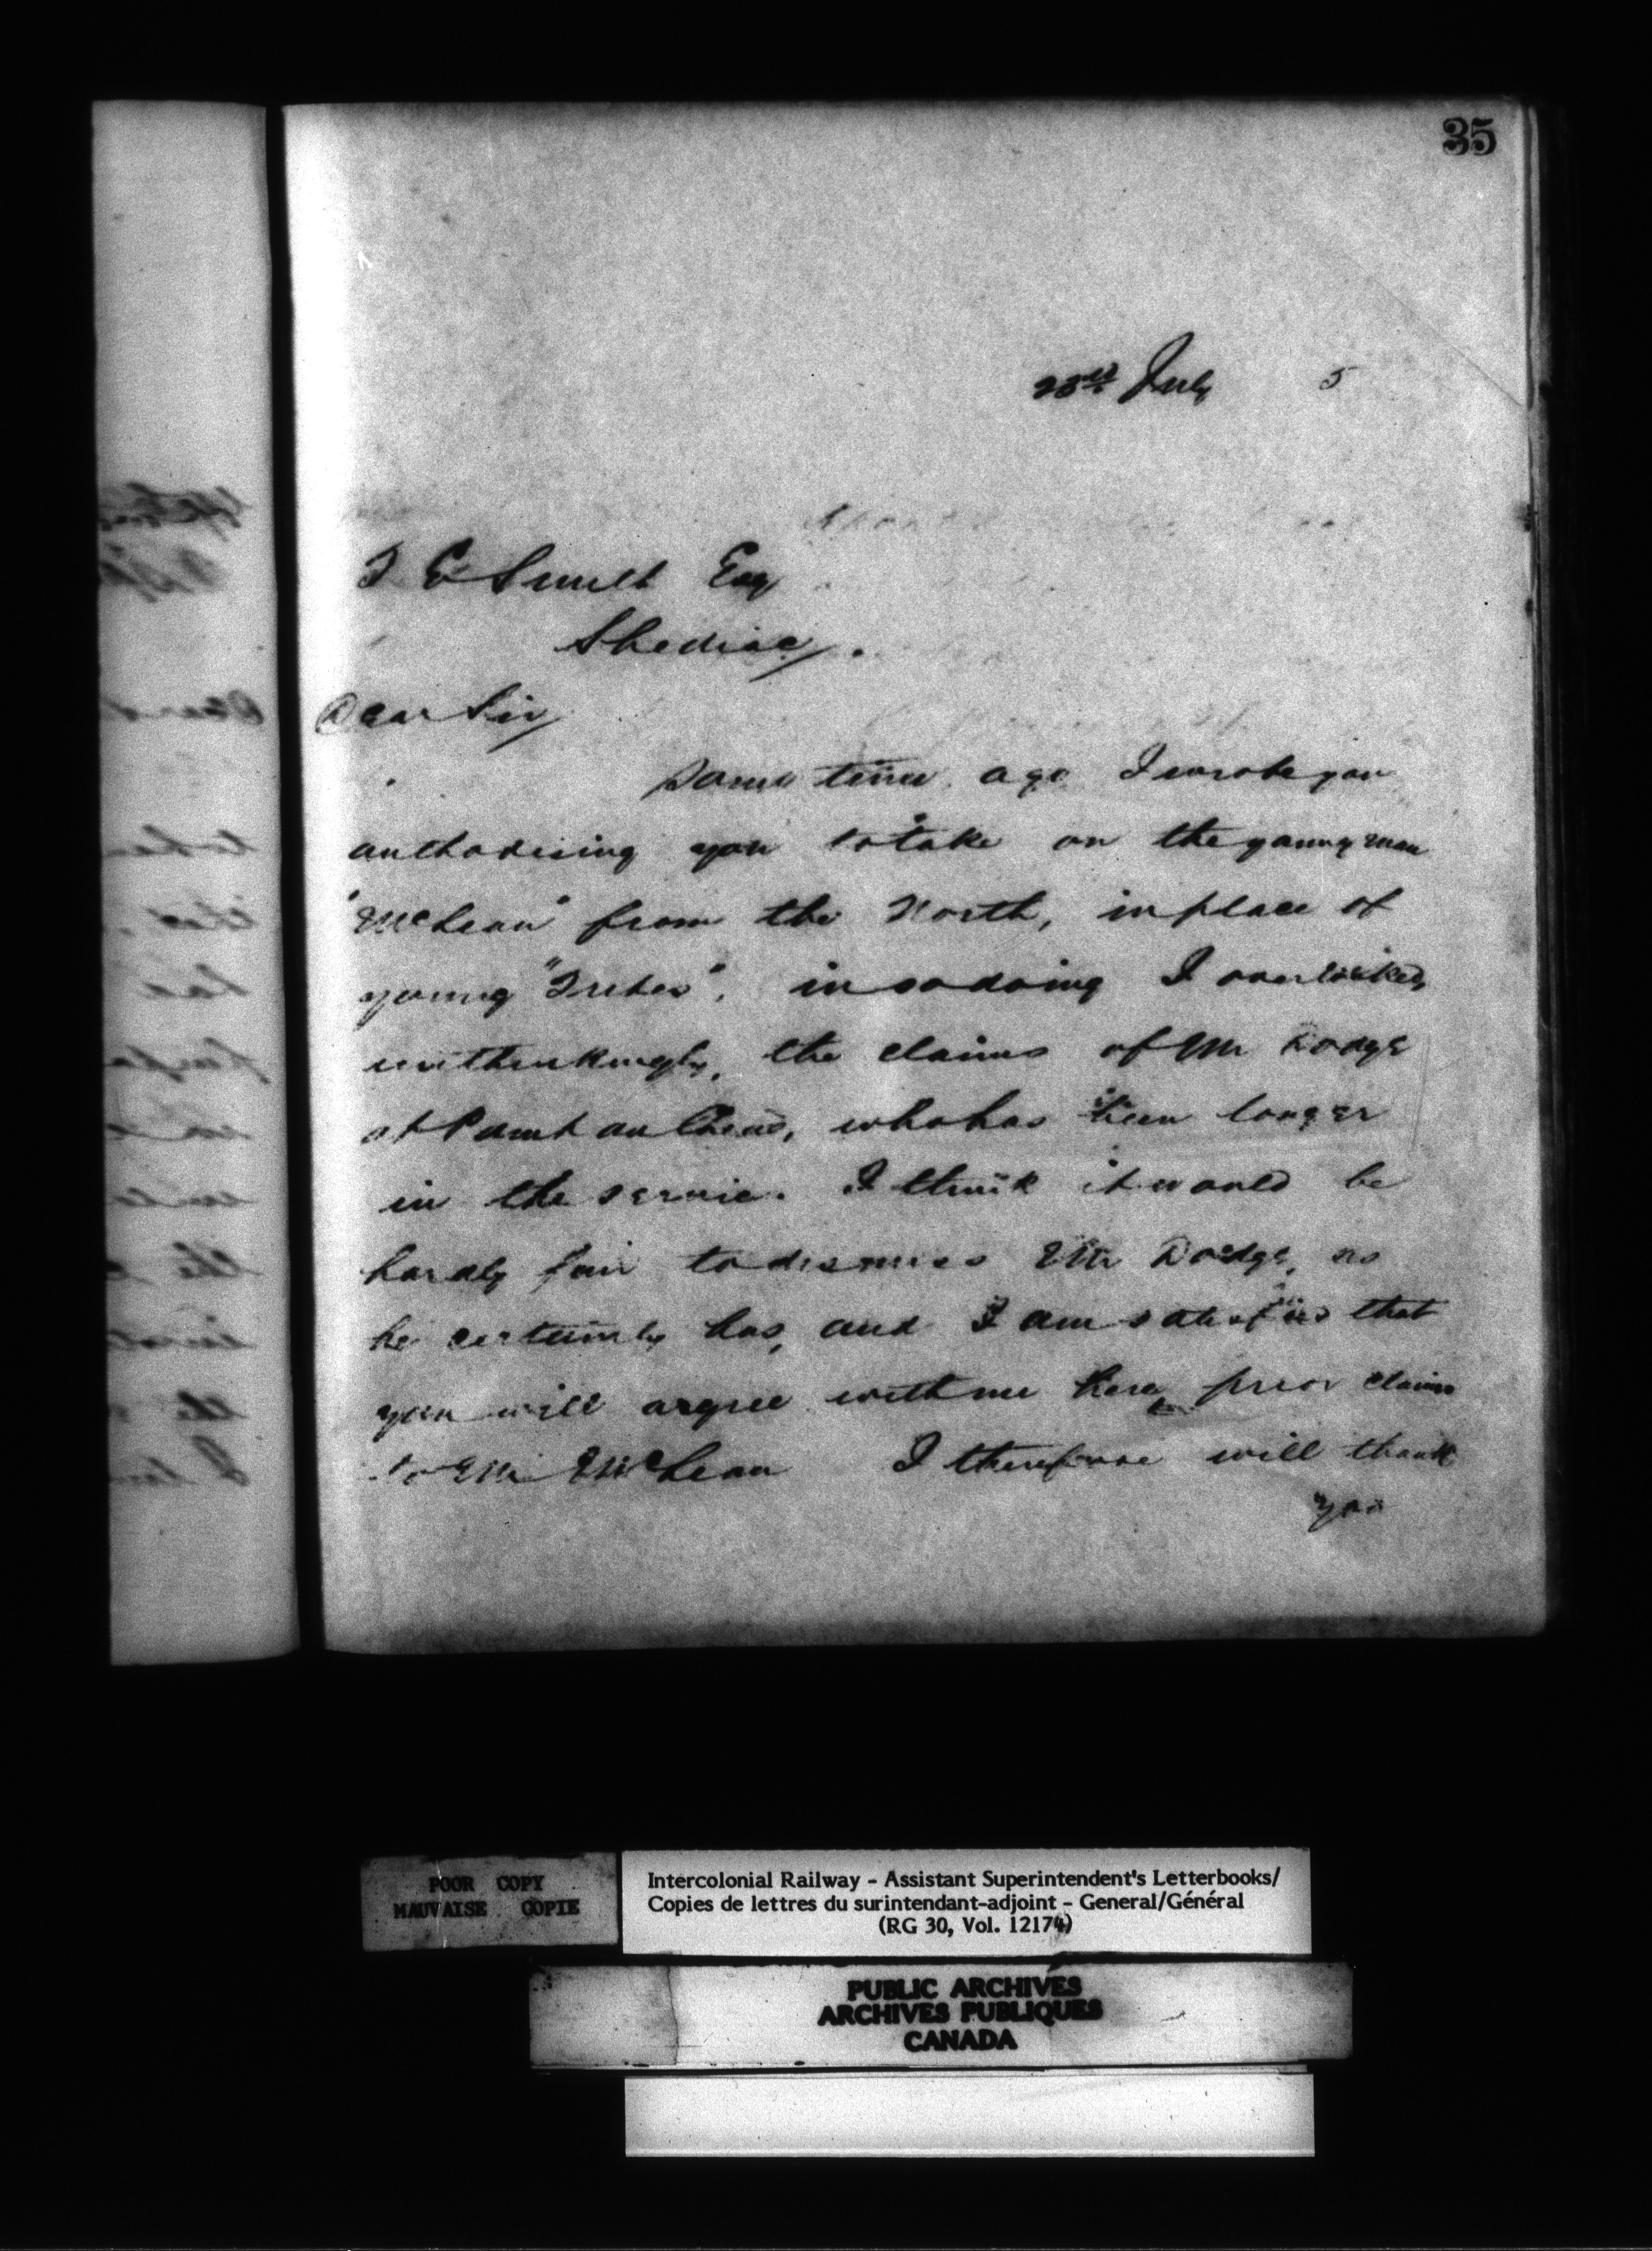 35
23rd July 5
T E Smith Esq
Shediac.
Dear Sir
Some time ago I wrote you
authorising you to take on the young man
"McLean" from the North, in place of
young in so doing I overlooked
unthinkingly, the claims of Mr Dodge
at Point du Chene, who has been longer
in the service. I think it would be
hardly fair to dismiss Mr Dodge, as
he certainly has, and I am satisfied that
you will argree with me here, prior claim
to Mr McLean I therefore will thank
you
POOR COPY
MAUVAISE COPIE
Intercolonial Railway - Assistant Superintendent's Letterbooks/
Copies de lettres du surintendant-adjoint - General/Général
(RG 30, Vol. 12174)
PUBLIC ARCHIVES
ARCHIVES PUBLIQUES
CANADA